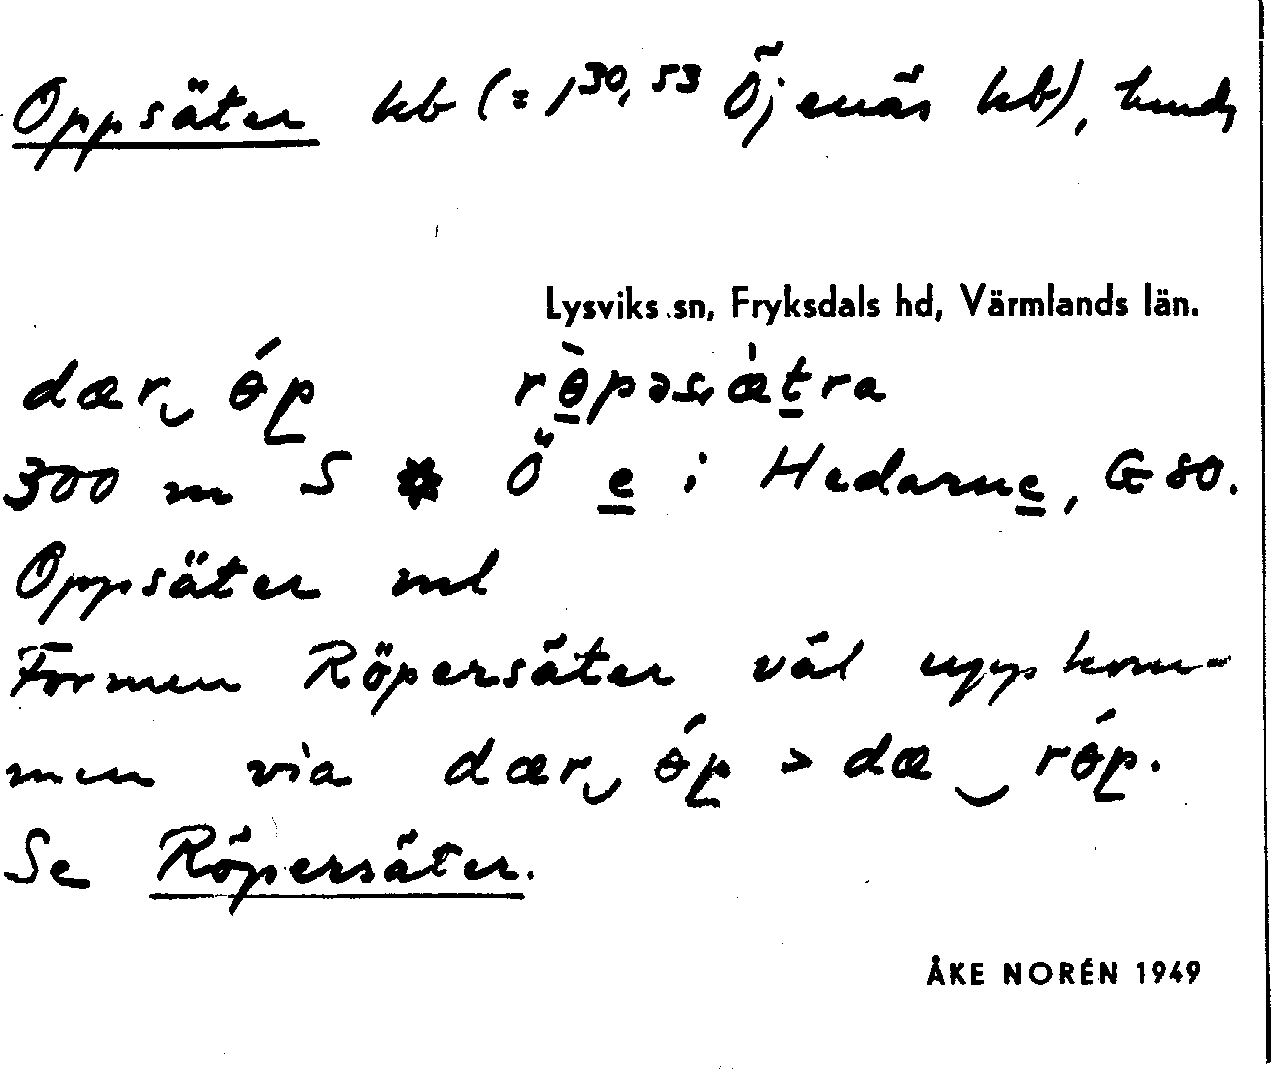 Oppsäter kb (= 1³⁰, ⁵³ Öjenäs kb),
Lysviks sn, Fryksdals hd, Värmlands län.
dær öp röpəsætra
300 m S Ö e i Hedarne, G 80.
Oppsäter ml
Formen Röpersäter väl uppkom-
men via dær öp > dæ röp.
Se Röpersäter.
ÅKE NORÉN 1949